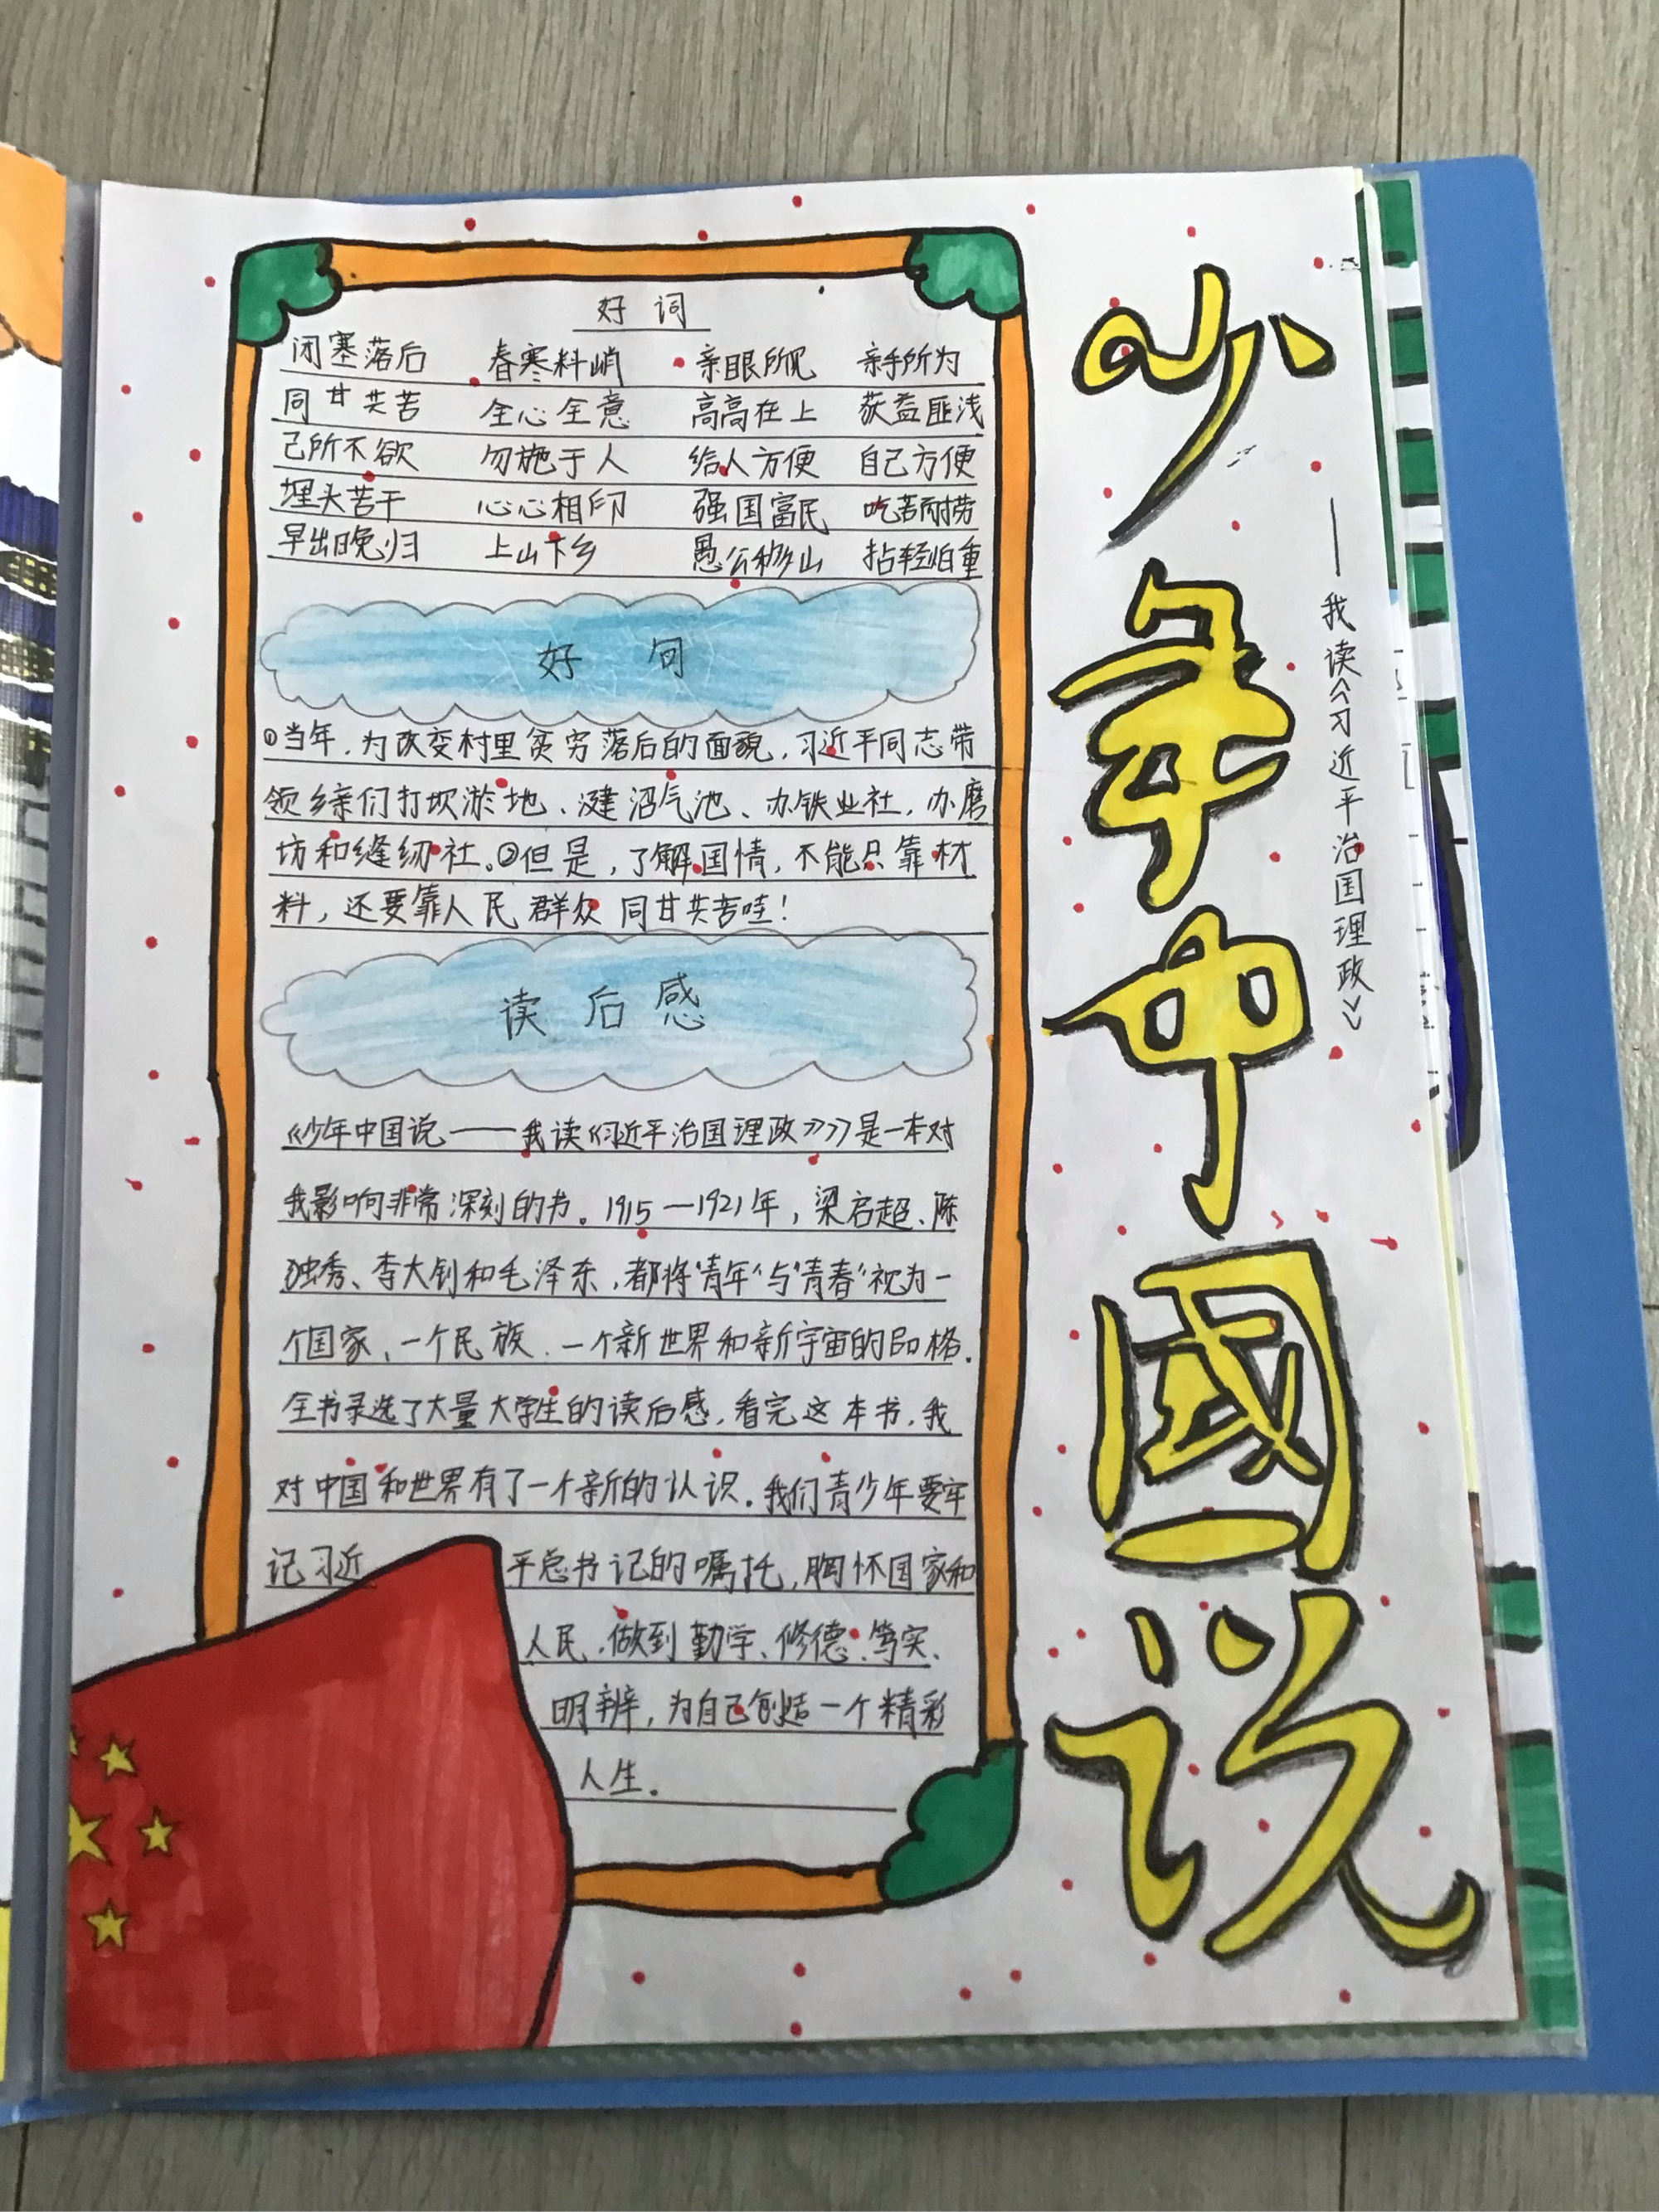 少年中国说
——我读《习近平治国理政》
好 词
闭塞落后 春寒料峭 亲眼所见 亲手所为
同甘共苦 全心全意 高高在上 获益匪浅
己所不欲 勿施于人 给人方便 自己方便
埋头苦干 心心相印 强国富民 吃苦耐劳
早出晚归 上山下乡 愚公移山 拈轻怕重
好 句
①当年,为改变村里贫穷落后的面貌,习近平同志带
领乡亲们打坝淤地、建沼气池、办铁业社,办磨
坊和缝纫社。②但是,了解国情,不能只靠材
料,还要靠人民群众同甘共苦哇!
读后感
《少年中国说——我读《习近平治国理政》》是一本对
我影响非常深刻的书。1915—1921年,梁启超、陈
独秀、李大钊和毛泽东,都将“青年”与“青春”视为一
个国家、一个民族、一个新世界和新宇宙的品格.
全书录选了大量大学生的读后感,看完这本书,我
对中国和世界有了一个新的认识.我们青少年要牢
记习近平总书记的嘱托,胸怀国家和
人民,做到勤学、修德、笃实、
明辨,为自己创造一个精彩
人生.